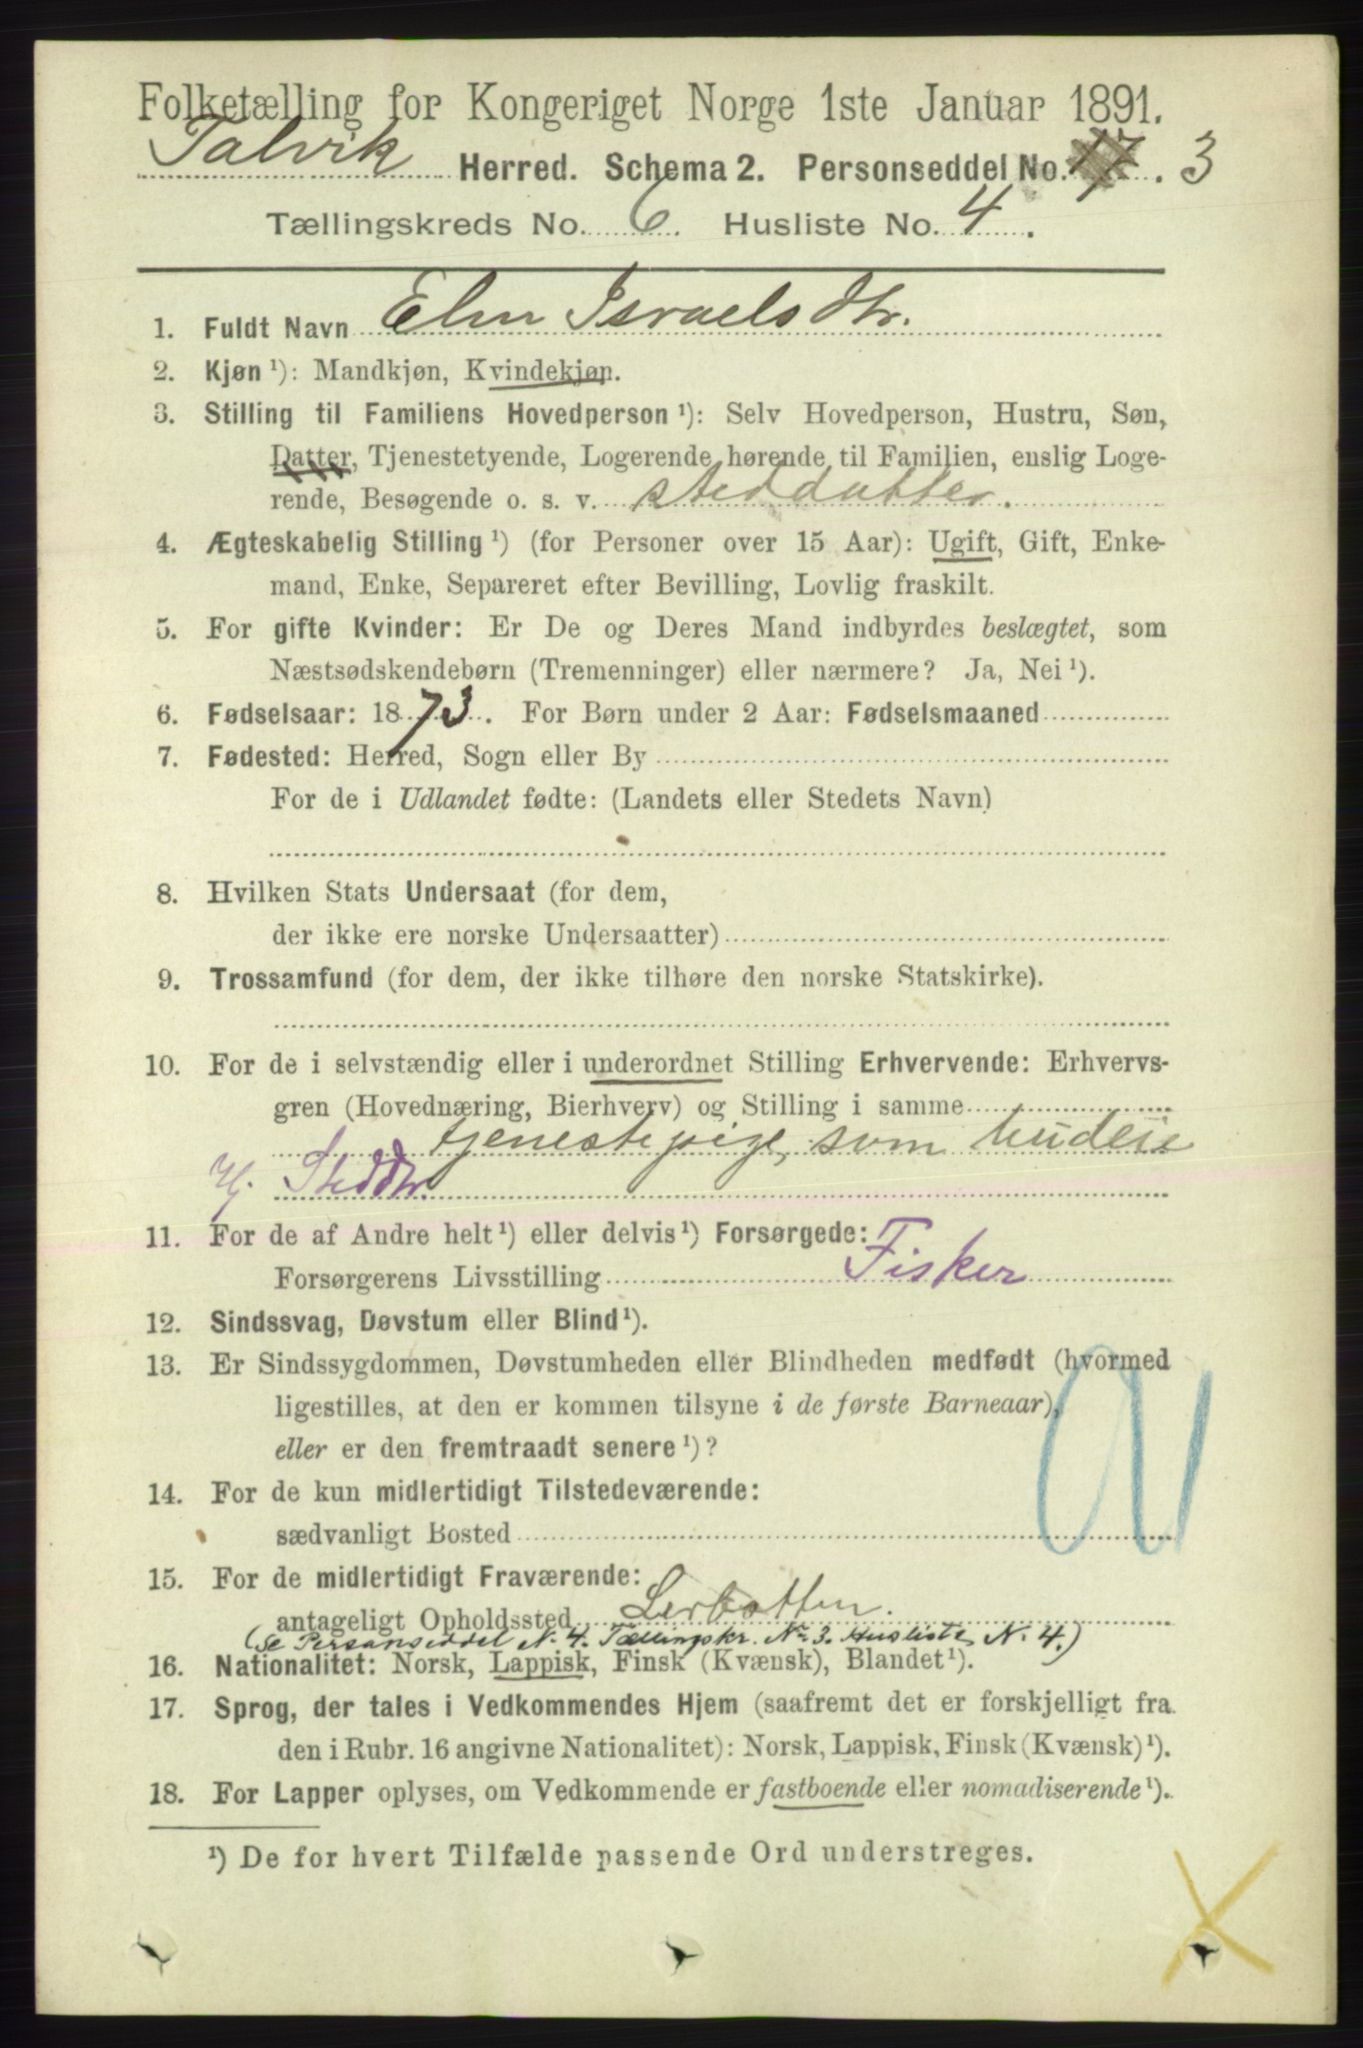 Folketælling for Kongeriget Norge 1ste Januar 1891.
Talvik Herred. Schema 2. Personseddel No. 17. 3
Tællingskreds No. 6. Husliste No. 4.
1. Fuldt Navn Elen Israelsdtr.
2. Kjøn ¹): Mandkjøn, Kvindekjøn.
3. Stilling til Familiens Hovedperson ¹): Selv Hovedperson, Hustru, Søn,
Datter, Tjenestetyende, Logerende hørende til Familien, enslig Loge-
rende, Besøgende o. s. v. steddatter.
4. Ægteskabelig Stilling ¹) (for Personer over 15 Aar): Ugift, Gift, Enke-
mand, Enke, Separeret efter Bevilling, Lovlig fraskilt.
5. For gifte Kvinder: Er De og Deres Mand indbyrdes beslægtet, som
Næstsødskendebørn (Tremenninger) eller nærmere? Ja, Nei ¹).
6. Fødselsaar: 1873. For Børn under 2 Aar: Fødselsmaaned
7. Fødested: Herred, Sogn eller By
For de i Udlandet fødte: (Landets eller Stedets Navn)
8. Hvilken Stats Undersaat (for dem,
der ikke ere norske Undersaatter)
9. Trossamfund (for dem, der ikke tilhøre den norske Statskirke).
10. For de i selvstændig eller i underordnet Stilling Erhvervende: Erhvervs-
gren (Hovednæring, Bierhverv) og Stilling i samme
tjenestepige, som budeie
Hj. Steddtr.
11. For de af Andre helt ¹) eller delvis ¹) Forsørgede:
Forsørgerens Livsstilling Fisker
12. Sindssvag, Døvstum eller Blind ¹).
13. Er Sindssygdommen, Døvstumheden eller Blindheden medfødt (hvormed
ligestilles, at den er kommen tilsyne i de første Barneaar),
eller er den fremtraadt senere ¹)?
14. For de kun midlertidigt Tilstedeværende:
sædvanligt Bosted
15. For de midlertidigt Fraværende:
antageligt Opholdssted Lerbotten.
(Se Personseddel N. 4. Tællingskr. No 3. Husliste N. 4.)
16. Nationalitet: Norsk, Lappisk, Finsk (Kvænsk), Blandet ¹).
17. Sprog, der tales i Vedkommendes Hjem (saafremt det er forskjelligt fra
den i Rubr. 16 angivne Nationalitet): Norsk, Lappisk, Finsk (Kvænsk) ¹).
18. For Lapper oplyses, om Vedkommende er fastboende eller nomadiserende ¹).
¹) De for hvert Tilfælde passende Ord understreges.